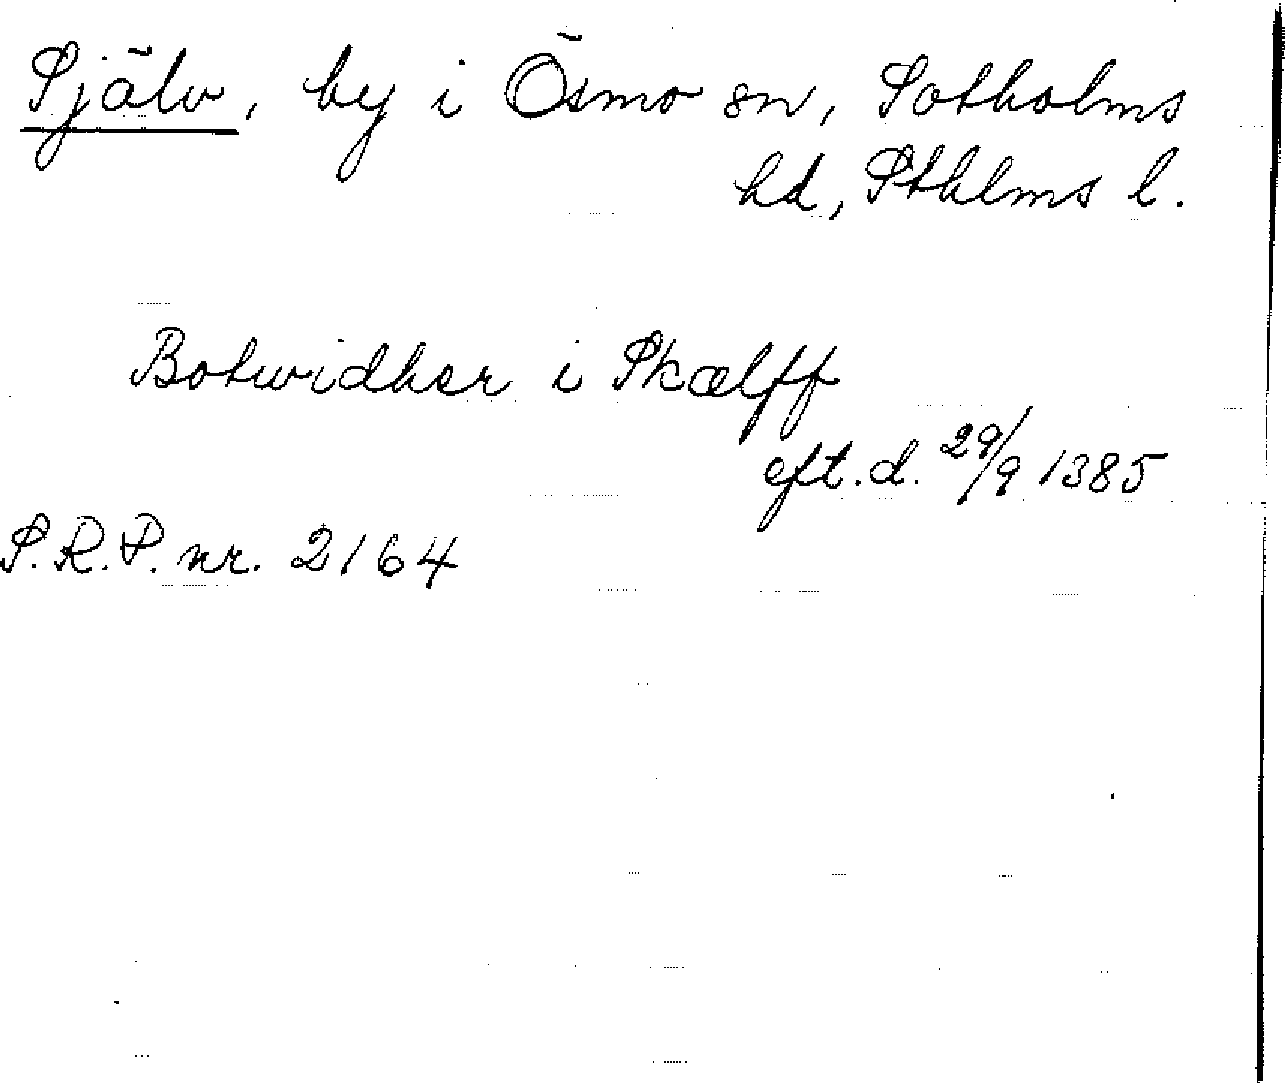 Själv, by i Ösmo sn, Sotholms
hd, Sthlms l.
Botwidher i Skælff
eft. d. 29/9 1385
S.R.P. nr. 2164